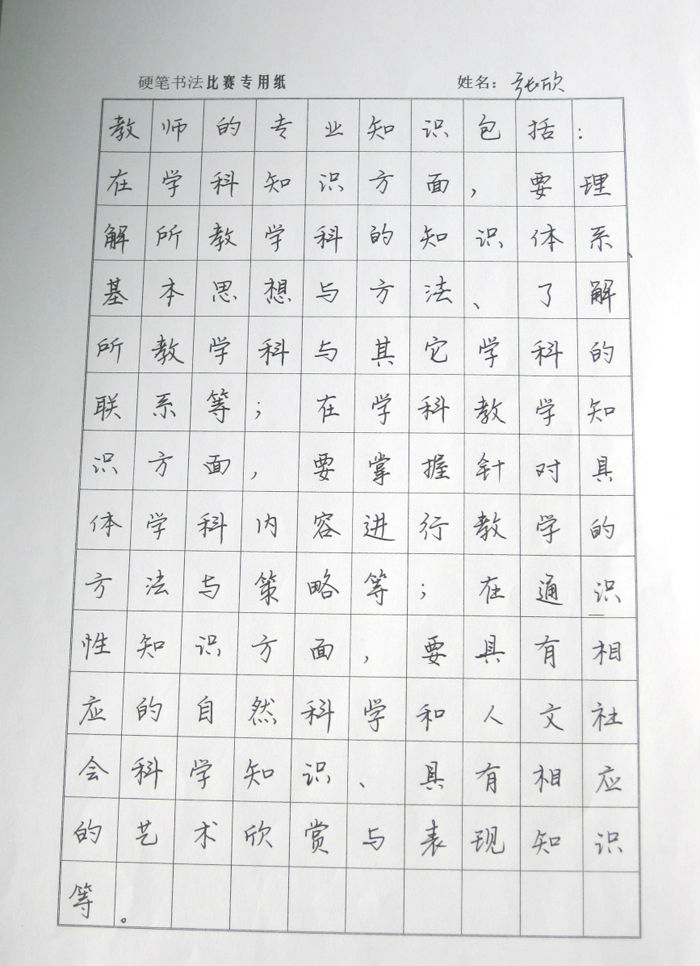 硬笔书法比赛专用纸 姓名：张欣
教师的专业知识包括：
在学科知识方面，要理
解所教学科的知识体系、
基本思想与方法、了解
所教学科与其它学科的
联系等；在学科教学知
识方面，要掌握针对具
体学科内容进行教学的
方法与策略等；在通识
性知识方面，要具有相
应的自然科学和人文社
会科学知识、具有相应
的艺术欣赏与表现知识
等。